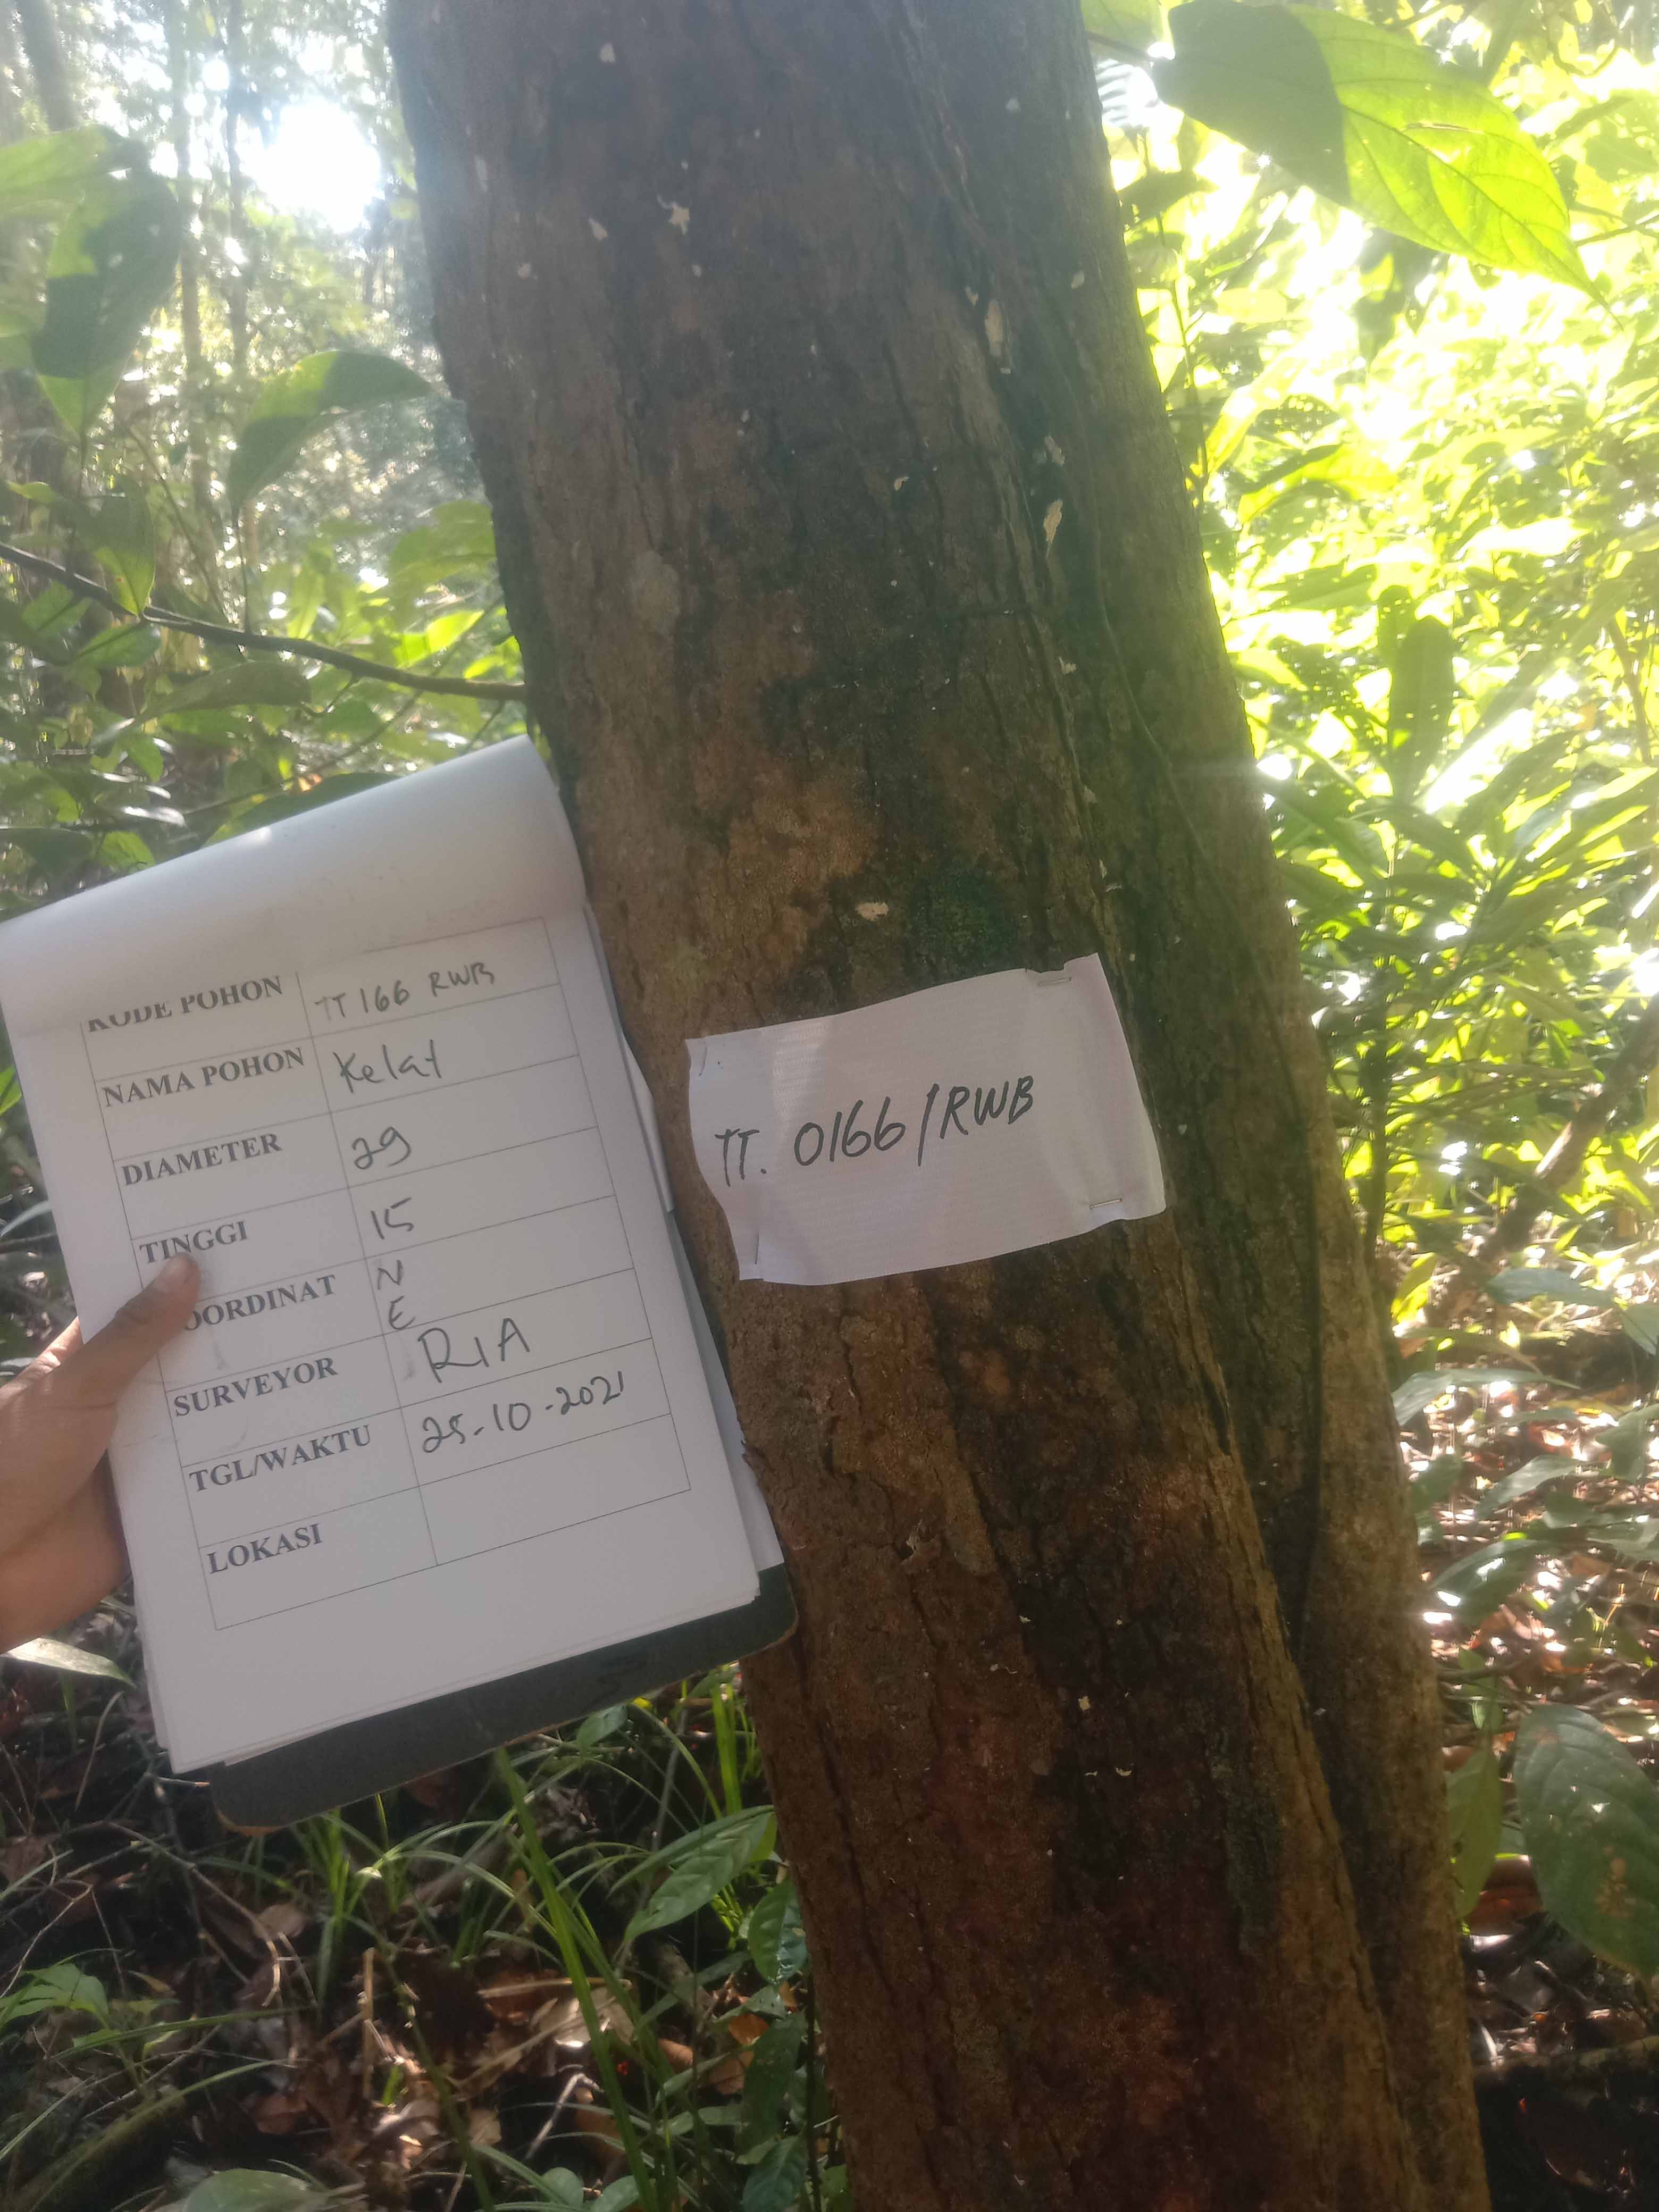 KODE POHON TT 166 RWB
NAMA POHON Kelat
DIAMETER 29
TINGGI 15
OORDINAT N
E
SURVEYOR RIA
TGL/WAKTU 25-10-2021
LOKASI
TT. 0166/RWB